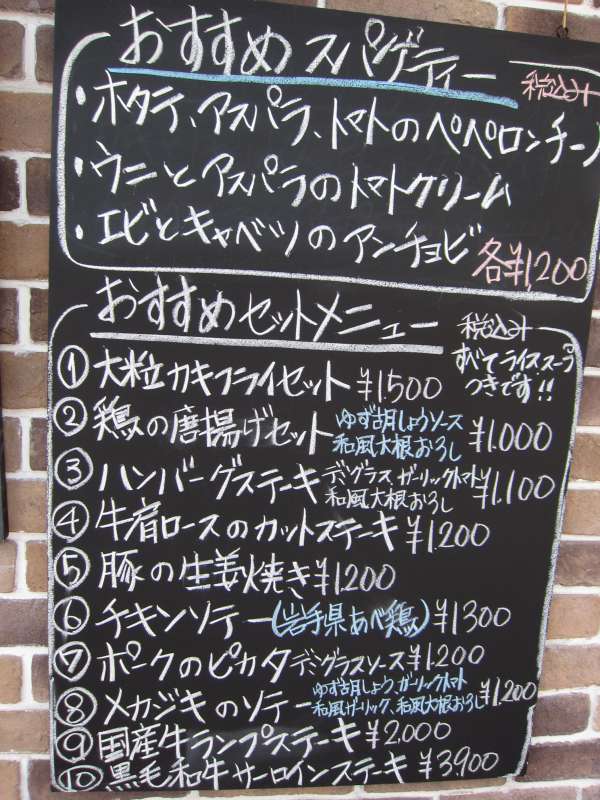 おすすめスパゲティー 税込み
・ホタテ、アスパラ、トマトのペペロンチーノ
・ウニとアスパラのトマトクリーム
・エビとキャベツのアンチョビ
各¥1,200
おすすめセットメニュー 税込み
すべてライススープ
つきです!!
①大粒カキフライセット ¥1,500
②鶏の唐揚げセット ゆず胡しょうソース
和風大根おろし ¥1,000
③ハンバーグステーキ デミグラス ガーリックトマト
和風大根おろし ¥1,100
④牛肩ロースのカットステーキ ¥1,200
⑤豚の生姜焼き ¥1,200
⑥チキンソテー(岩手県あべ鶏) ¥1300
⑦ポークのピカタ デミグラスソース ¥1,200
⑧メカジキのソテー ゆず胡しょう ガーリックトマト
和風ガーリック、和風大根おろし ¥1,200
⑨国産牛ランプステーキ ¥2,000
⑩黒毛和牛サーロインステーキ ¥3,900